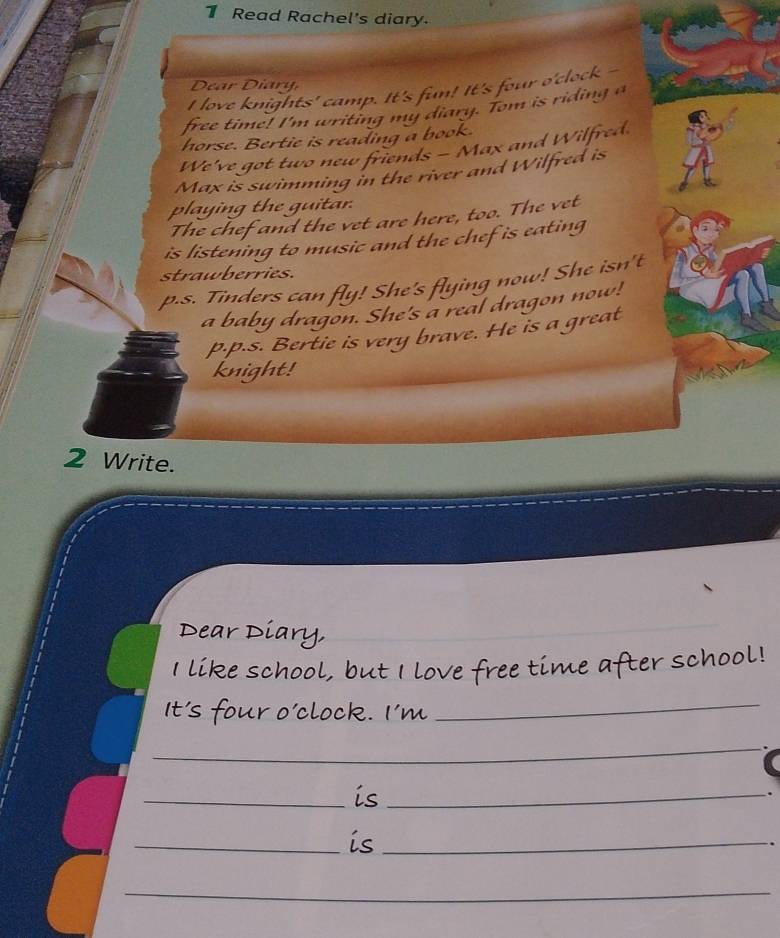 1 Read Rachel's diary.
Dear Diary,
I love knights' camp. It's fun! It's four o'clock –
free time! I'm writing my diary. Tom is riding a
horse. Bertie is reading a book.
We've got two new friends – Max and Wilfred.
Max is swimming in the river and Wilfred is
playing the guitar.
The chef and the vet are here, too. The vet
is listening to music and the chef is eating
strawberries.
p.s. Tinders can fly! She's flying now! She isn't
a baby dragon. She's a real dragon now!
p.p.s. Bertie is very brave. He is a great
knight!
2 Write.
Dear Diary,
I like school, but I love free time after school!
It's four o'clock. I'm ____
____.
____ is ____.
____ is ____.